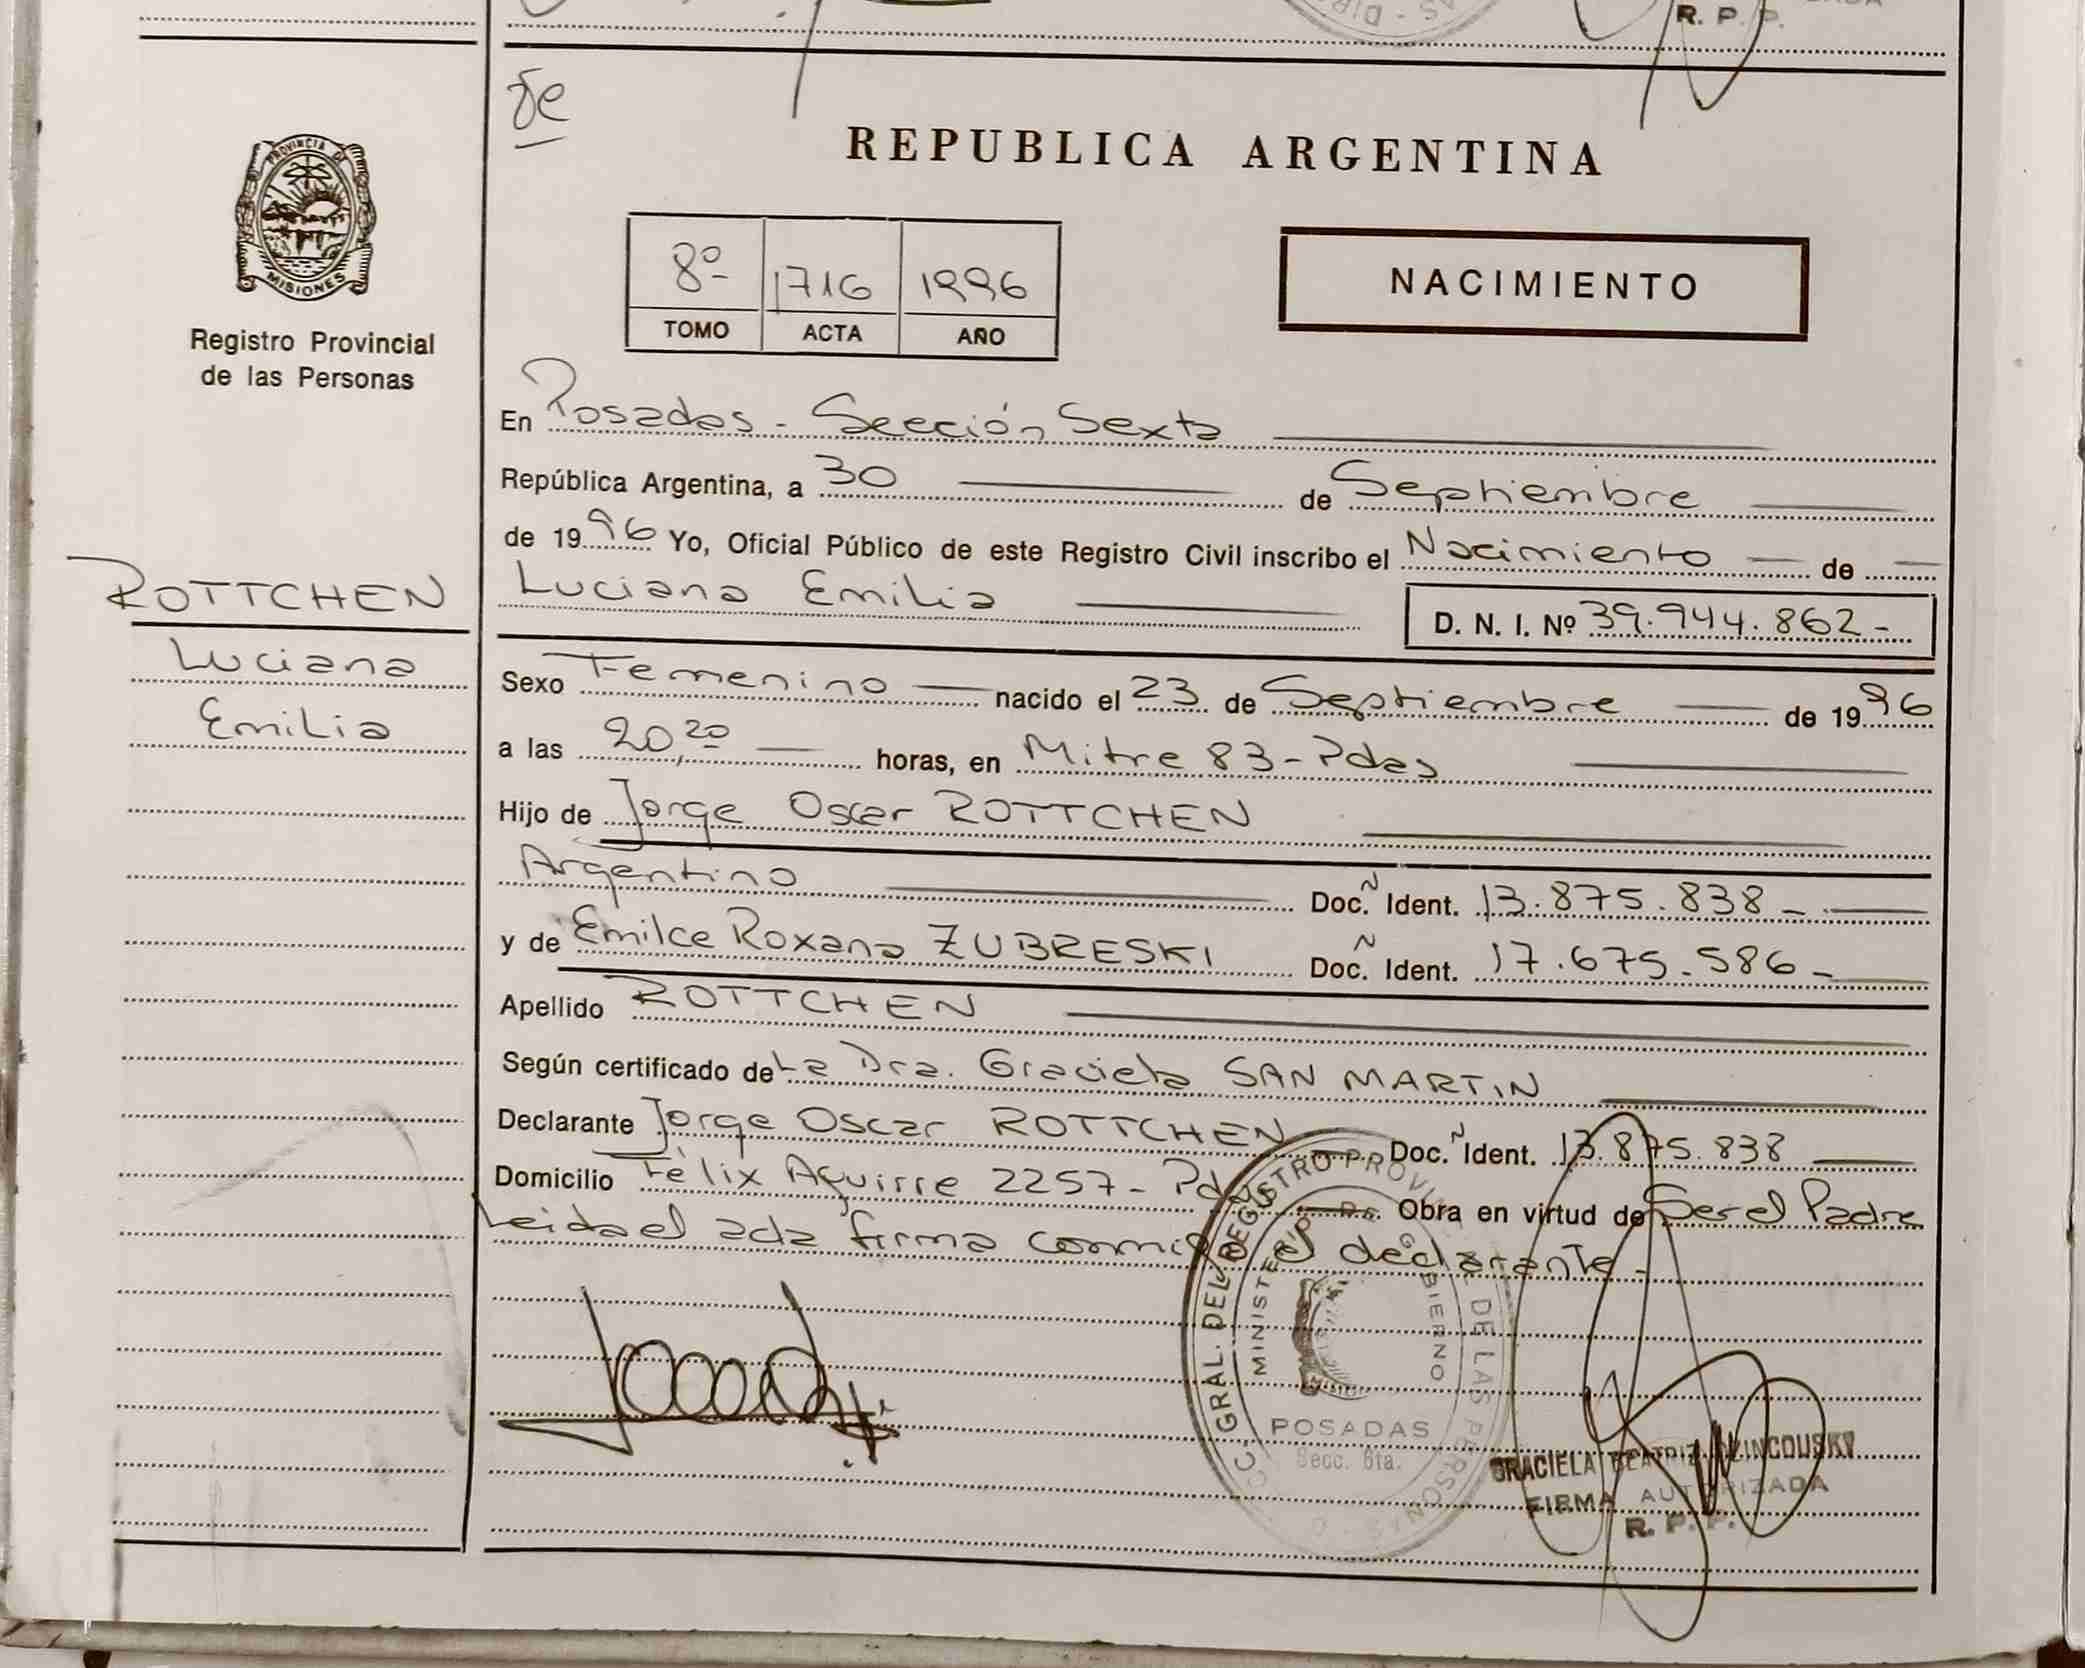 R. P. P.
REPUBLICA ARGENTINA
PROVINCIA DE
MISIONES
Registro Provincial
de las Personas
8º 1716 1996
TOMO ACTA AÑO
NACIMIENTO
En Posadas - Sección Sexta
República Argentina, a 30 de Septiembre
de 1996 Yo, Oficial Público de este Registro Civil inscribo el Nacimiento de
Luciana Emilia
D. N. I. Nº 39.944.862-
ROTTCHEN
Luciana
Emilia
Sexo Femenino nacido el 23 de Septiembre de 1996
a las 20,20 horas, en Mitre 83 - Pdas
Hijo de Jorge Oscar ROTTCHEN
Argentino Doc. Ident. 13.875.838-
y de Emilce Roxana ZUBRESKI Doc. Ident. 17.675.586-
Apellido ROTTCHEN
Según certificado de La Dra. Graciela SAN MARTIN
Declarante Jorge Oscar ROTTCHEN Doc. Ident. 13.875.838
Domicilio Félix Aguirre 2257 - Pdas Obra en virtud de Ser el Padre
Leida el acta firma conmigo el declarante -
GRAL. DEL REGISTRO PROVINCIAL DE LAS PERSONAS
MINISTERIO DE GOBIERNO
POSADAS
Secc. 6ta.
GRACIELA BEATRIZ
FIRMA AUTORIZADA
R. P. P.